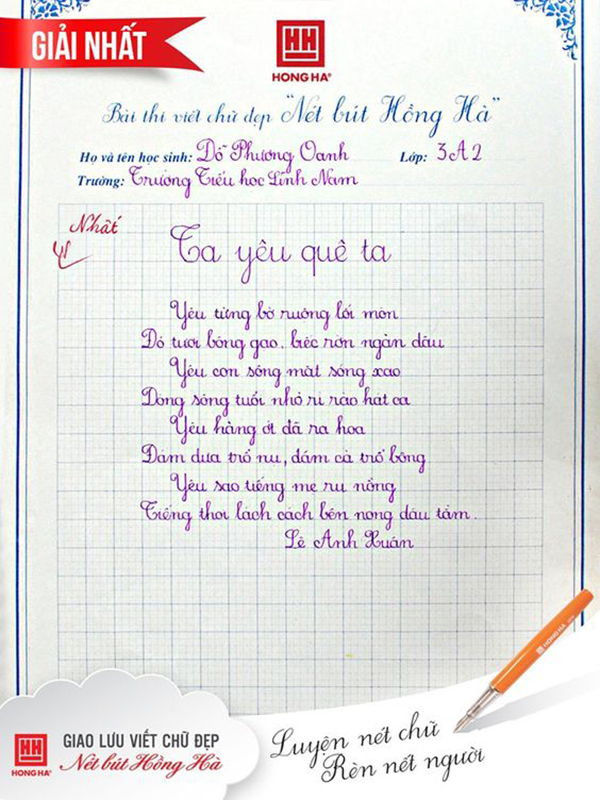 GIẢI NHẤT
HH
HONG HA®
Bài thi viết chữ đẹp "Nét bút Hồng Hà"
Họ và tên học sinh: Đỗ Phương Oanh Lớp: 3A2
Trường: Trường Tiểu học Lĩnh Nam
Nhất
Ta yêu quê ta
Yêu từng bờ ruộng lối mòn
Đỏ tươi bông gạo, biếc rờn ngàn dâu
Yêu con sông mặt sóng xao
Dòng sông tuổi nhỏ rì rào hát ca
Yêu hàng ớt đã ra hoa
Đám dưa trổ nụ, đám cà trổ bông
Yêu sao tiếng mẹ ru nồng
Tiếng thoi lách cách bên nong dâu tằm.
Lê Anh Xuân
HONG HA
HH
HONG HA®
GIAO LƯU VIẾT CHỮ ĐẸP
Nét bút Hồng Hà
Luyện nét chữ
Rèn nết người